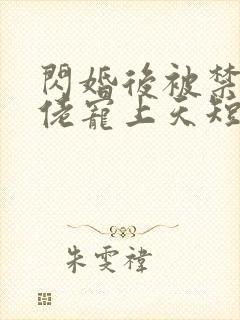 閃婚後被禁
佬寵上天短
朱雯禕